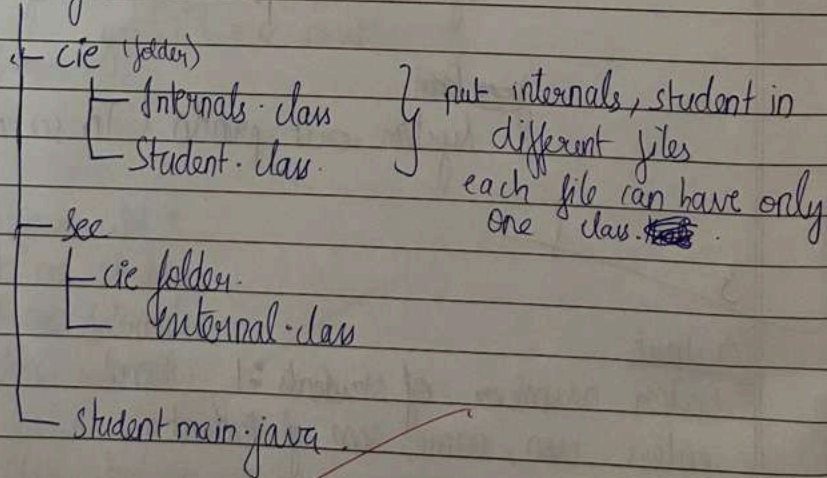 cie (folder)
Internals.class
Student.class.
} put internals, student in
different files
each file can have only
one class.
See
cie folder.
External.class
Student main.java.